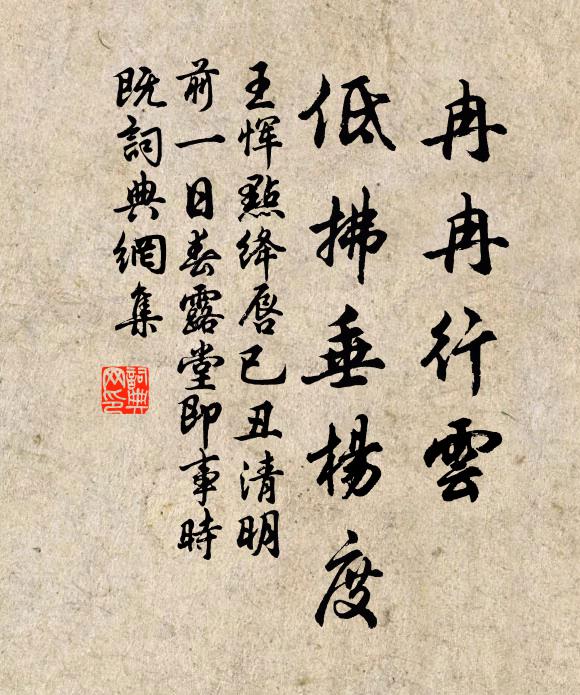 冉冉行雲
低拂垂楊度
王惲點絳唇已丑清明
前一日春露堂即事時
既詞典網集
詞典
网印